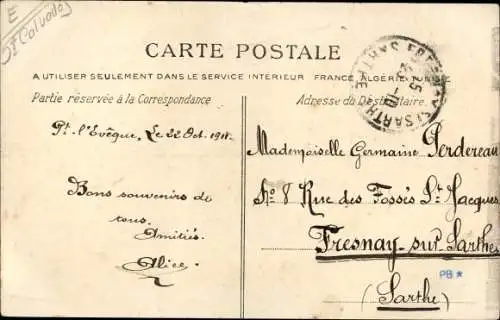 E
(Calvados)
CARTE POSTALE
A UTILISER SEULEMENT DANS LE SERVICE INTÉRIEUR FRANCE, ALGÉRIE, TUNISIE
Partie réservée à la Correspondance
Adresse du Destinataire.
25
Pt. l'Evêque, Le 22 Oct.
Bons souvenirs de
tous.
Amitiés.
Alice
Mademoiselle Germaine Perdereau
No 8 Rue des Fossés St Jacques
Fresnay-sur-Sarthe
PB *
(Sarthe)